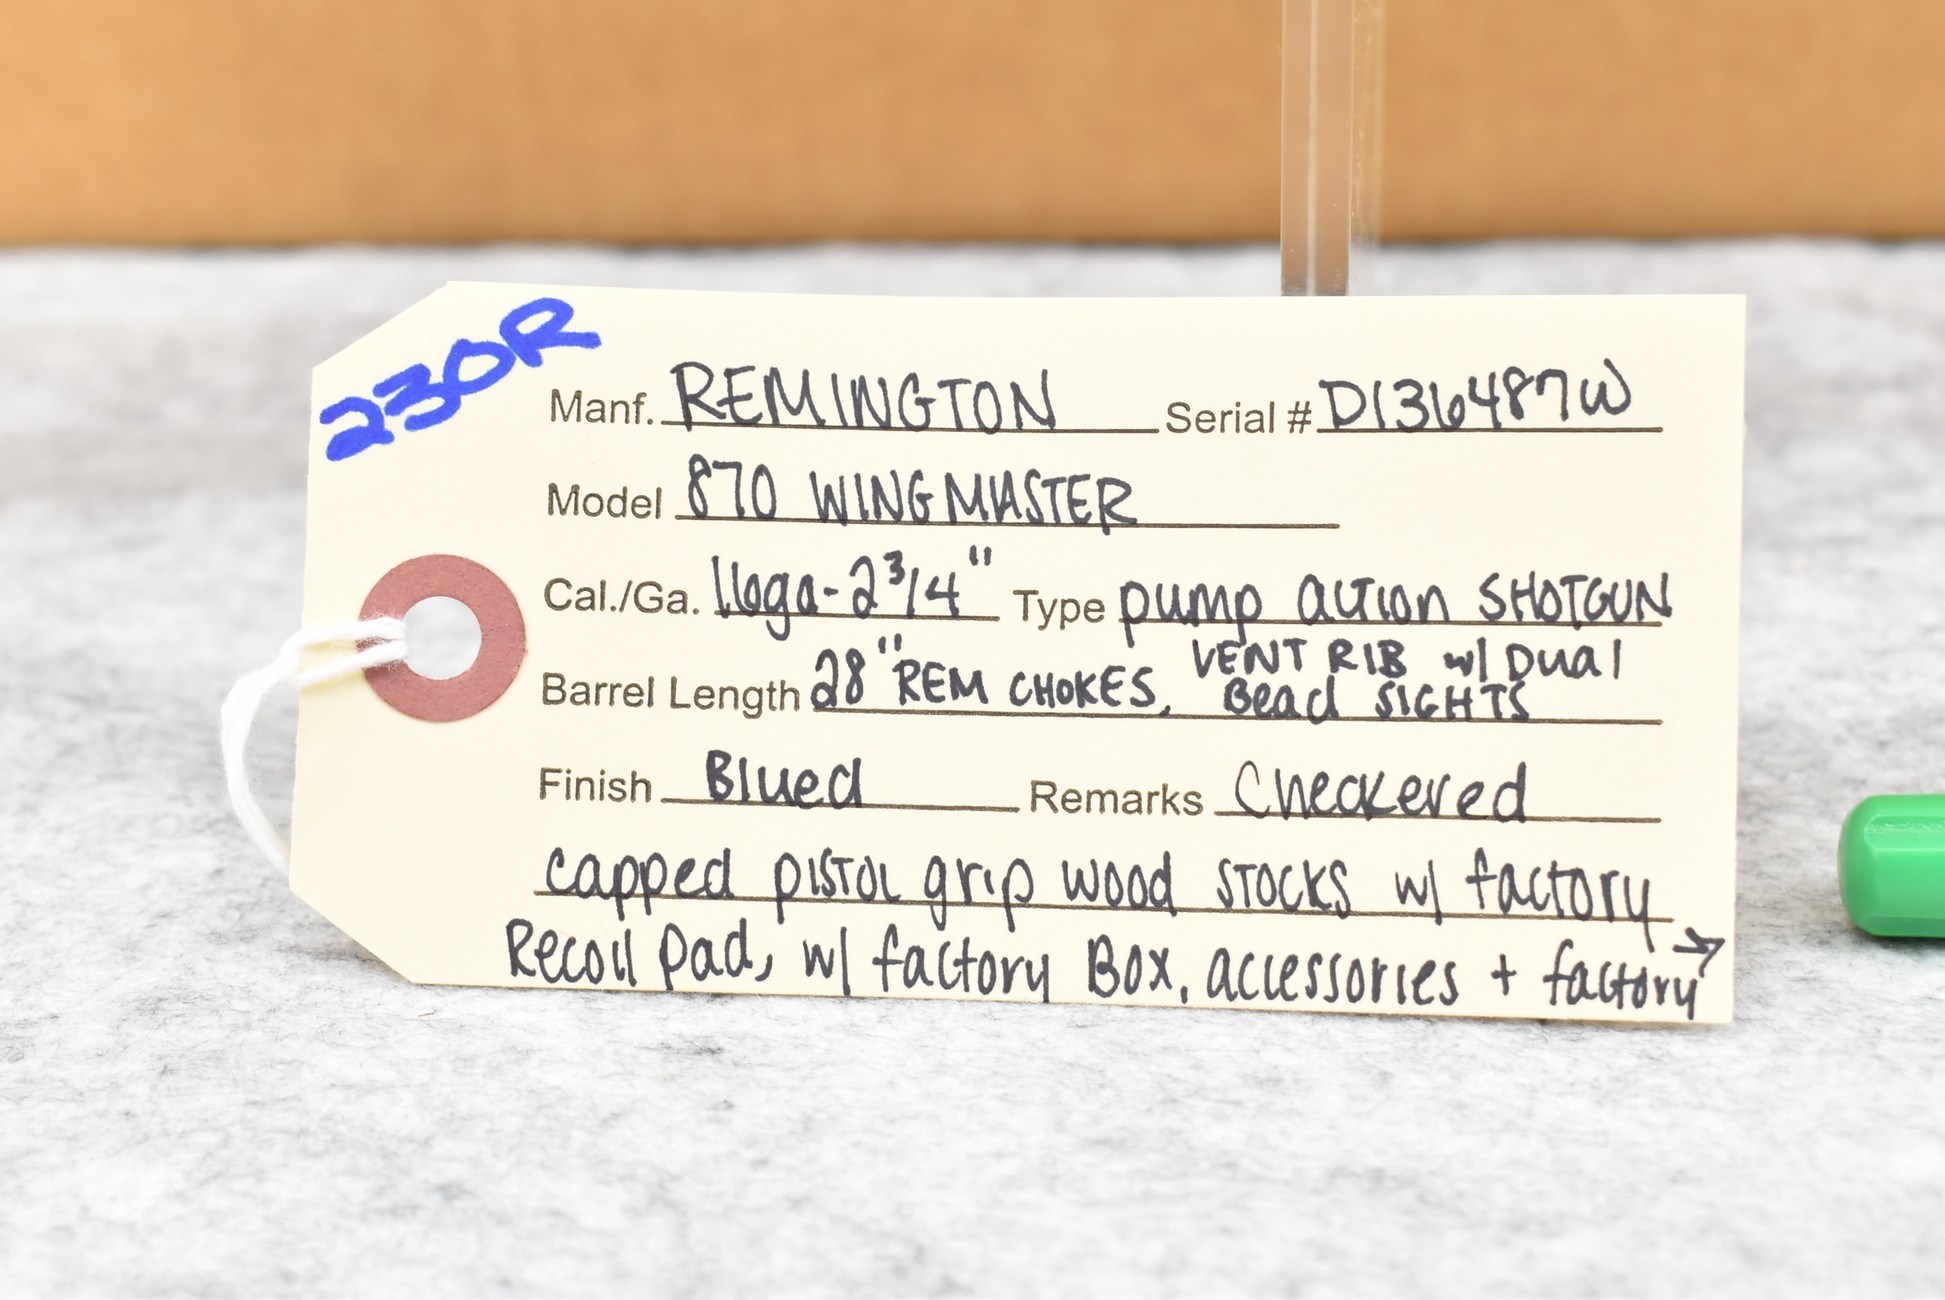 230R
Manf. REMINGTON Serial # D136487W
Model 870 WINGMASTER
Cal./Ga. 16ga-2 3/4" Type pump action SHOTGUN
Barrel Length 28" REM CHOKES, VENT RIB w/ Dual
Bead SIGHTS
Finish Blued Remarks Checkered
capped pistol grip wood STOCKS w/ factory
Recoil pad, w/ factory Box, accessories + factory →